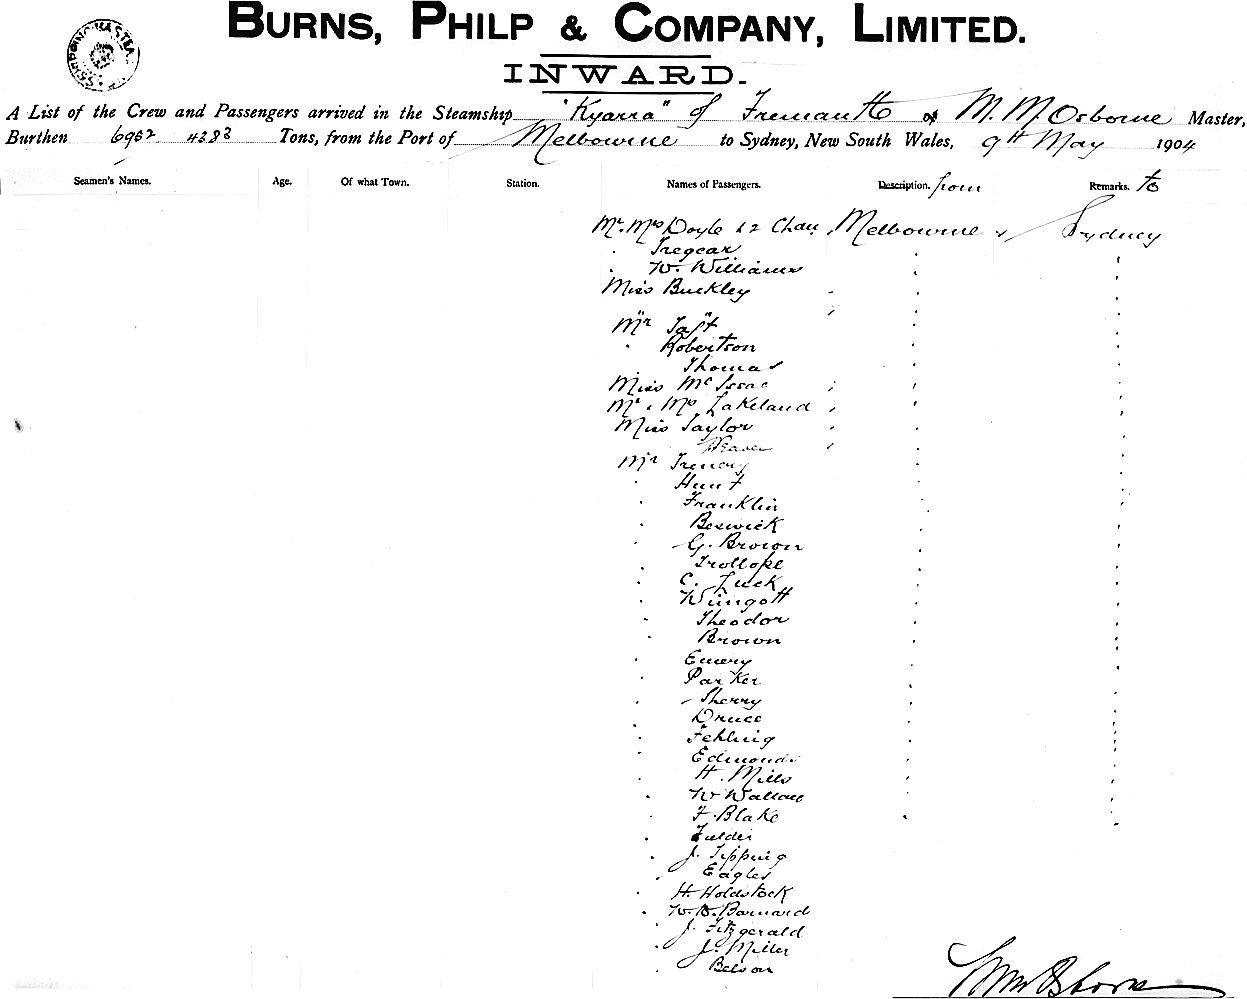 BURNS, PHILP & COMPANY, LIMITED.
INWARD.
A List of the Crew and Passengers arrived in the Steamship "Kyarra" of Fremantle of M. M. Osborne Master,
Burthen 6952 4383 Tons, from the Port of Melbourne to Sydney, New South Wales, 9th May 1904
Seamen's Names. Age. Of what Town. Station. Names of Passengers. Description. from Remarks. to
Mr. Mrs Doyle & 2 Melbourne Sydney
Tregear
W. Williams
Miss Buckley
Mr Taft
Robertson
Thomas
Miss McIssac
Mr. Mrs Lakeland
Miss Taylor
Weaver
Mr
Hunt
Franklin
Beswick
G. Brown
Trollope
C. Luck
Theodor
Brown
Emery
Parker
Sherry
Druce
Fehling
Edmonds
H. Mills
W Wallace
F. Blake
Fielder
J. Tipping
Eagles
H. Holdstock
W. B. Barnard
J. Fitzgerald
J. Miller
Belson